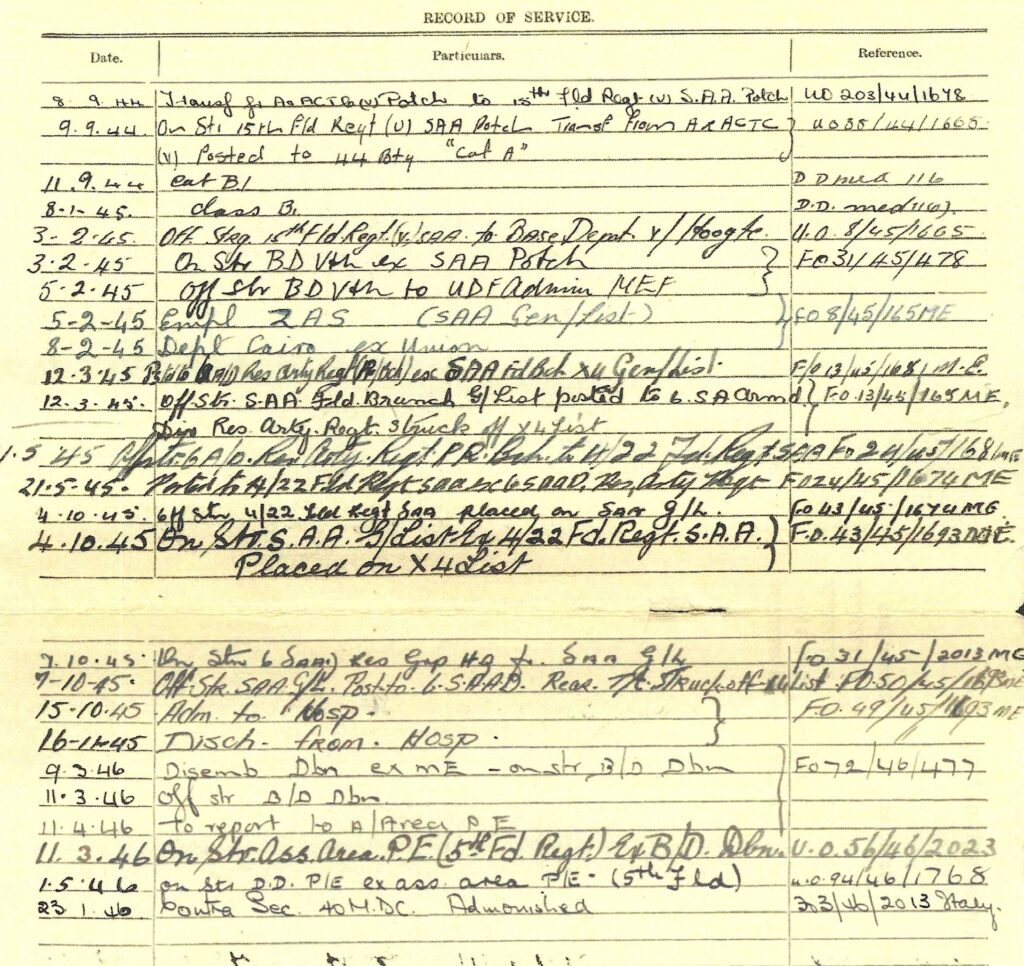 RECORD OF SERVICE.
Date. Particulars. Reference.
8. 9. 44 Transf fr A&ACTC (V) Potch to 15th Fld Regt (V) S.A.A. Potch UO 203/44/1678
9.9.44. On Str 15th Fld Regt (V) SAA Potch Transf from A&ACTC UO 35/44/1605
(V) Posted to 44 Bty "Cat A"
11.9.44 cat B1 D D med 116
8-1-45. class B1 D.D. med
3-2-45. Off Str 15th Fld Regt (V) SAA to Base Depot V/Hoogte U.O. 8/45/1605
3.2.45 On Str BD Vth ex SAA Potch FO 31/45/478
5.2.45 off Str BD Vth to UDF Admin MEF
5-2-45 Empl 2 AS (SAA Gen/List) FO 8/45/165 ME
8-2-45 Dept Cairo ex Union
12.3.45 Res Arty Regt ex SAA Fd Bch X4 Gen/List. F/O 13/45/1681 M.E.
12.3.45. Off Str. S.A.A. Fld. Branch G/List posted to 6. SA Armd FO 13/45/165 ME,
Div Res. Arty. Regt. Struck off X4 List
1.5 45 6 A/D. Res Arty. Regt. to 4/22 Fd. Regt SAA Fo 24/45/1681 ME
21.5.45. Posted to 4/22 Fld Regt SAA ex 6 SAAD. Res. Arty Regt FO 24/45/1674 ME
4.10.45. off Str 4/22 Fld Regt SAA placed on SAA G/L. FO 43/45/1674 ME
4.10.45 On Str. S.A.A. G/List Ex 4/22 Fd. Regt. S.A.A. F.O. 43/45/1693 ME.
Placed on X4 List
7.10.45. On Str 6 SAAD Res Grp HQ fr. SAA G/L FO 31/45/2013 ME
7-10-45. Off Str. SAA G/L. Post to 6. S.A.A.D. Rear. T/C. Struck off X4 list FO. 50/45/1693 ME
15-10.45 Adm. to Hosp. F.O. 49/45/1693 ME
16-11-45 Disch. from. Hosp.
9.3.46 Disemb Dbn ex ME - on str, B/D Dbn Fo 72/46/477
11.3.46 Off str B/D Dbn.
11.4.46 to report to A/Area P E
11. 3. 46 On Str. Ass. Area. P.E. (5th Fd. Regt.) Ex B/D. Dbn. U.O. 56/46/2023
1.5.46 on Str D.D. P/E ex ass. area P/E. (5th Fld) U.O. 94/46/1768
23.1.46 Contra Sec. 40 M.D.C. Admonished 303/46/2013 Italy.